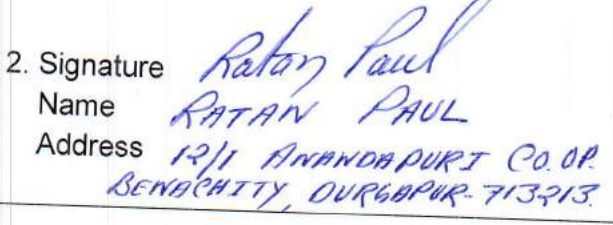 2. Signature Ratan Paul
Name RATAN PAUL
Address 12/1 ANANDAPURI CO.OP.
BENACHITY, DURGAPUR-713213.